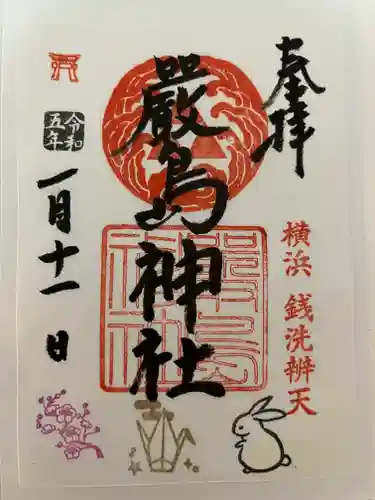 奉拝
横浜 銭洗辨天
厳島神社
令和
五年
一月十一日